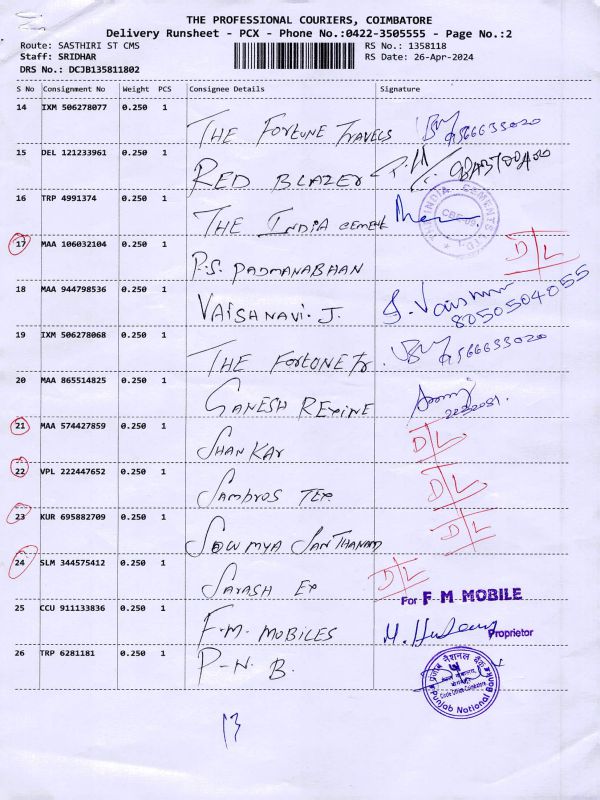 THE PROFESSIONAL COURIERS, COIMBATORE
Delivery Runsheet - PCX - Phone No.:0422-3505555 - Page No.:2
Route: SASTHIRI ST CMS
RS No.: 1358118
Staff: SRIDHAR
RS Date: 26-Apr-2024
DRS No.: DCJB135811802
S No Consignment No Weight PCS Consignee Details Signature
14 IXM 506278077 0.250 1 THE FORTUNE TRAVELS 9566633020
15 DEL 121233961 0.250 1 RED BLAZER
16 TRP 4991374 0.250 1 THE INDIA CEMENT
INDIA CEMENTS LTD
17 MAA 106032104 0.250 1 P.S. PADMANABHAN D/L
18 MAA 944798536 0.250 1 VAISHNAVI. J. 8050504055
19 IXM 506278068 0.250 1 THE FORTUNE Tr. 9566633020
20 MAA 865514825 0.250 1 GANESH REXINE
21 MAA 574427859 0.250 1 SHANKAR D/L
22 VPL 222447652 0.250 1 Sambros TEX D/L
23 KUR 695882709 0.250 1 SOWMYA SANTHANAM D/L
24 SLM 344575412 0.250 1 SARASH EX D/L
25 CCU 911133836 0.250 1 F.M. MOBILES
For F M MOBILE
Proprietor
26 TRP 6281181 0.250 1 P.N. B.
पंजाब नैशनल बैंक
Punjab National Bank
13